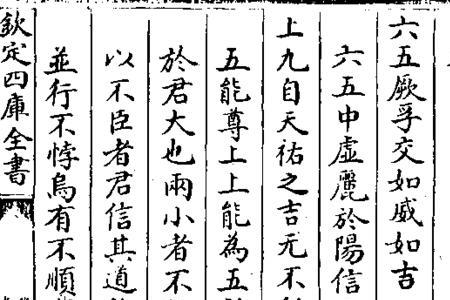 六五厥孚交如威如吉
六五中虛麗於陽信
上九自天祐之吉无不
五能尊上上能為五
於君大也兩小者不
以不臣者君信其道
並行不悖烏有不順
欽定四庫全書